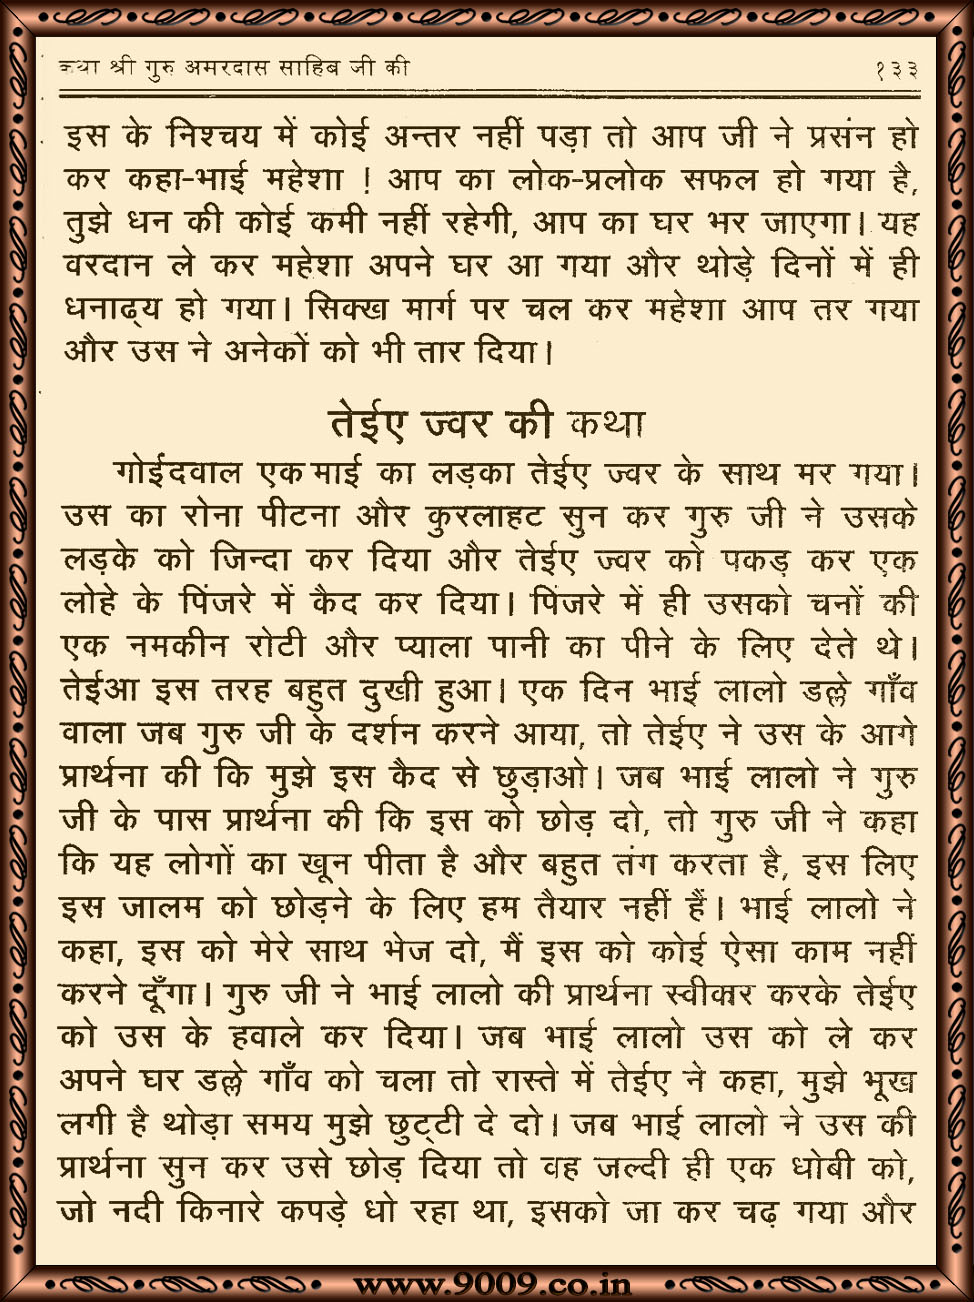 कथा श्री गुरु अमरदास साहिब जी की १३३
इस के निश्चय में कोई अन्तर नहीं पड़ा तो आप जी ने प्रसंन हो
कर कहा-भाई महेशा ! आप का लोक-प्रलोक सफल हो गया है,
तुझे धन की कोई कमी नहीं रहेगी, आप का घर भर जाएगा। यह
वरदान ले कर महेशा अपने घर आ गया और थोड़े दिनों में ही
धनाढ्य हो गया। सिक्ख मार्ग पर चल कर महेशा आप तर गया
और उस ने अनेकों को भी तार दिया।
तेईए ज्वर की कथा
गोईदवाल एक माई का लड़का तेईए ज्वर के साथ मर गया।
उस का रोना पीटना और कुरलाहट सुन कर गुरु जी ने उसके
लड़के को जिन्दा कर दिया और तेईए ज्वर को पकड़ कर एक
लोहे के पिंजरे में कैद कर दिया। पिंजरे में ही उसको चनों की
एक नमकीन रोटी और प्याला पानी का पीने के लिए देते थे।
तेईआ इस तरह बहुत दुखी हुआ। एक दिन भाई लालो डल्ले गाँव
वाला जब गुरु जी के दर्शन करने आया, तो तेईए ने उस के आगे
प्रार्थना की कि मुझे इस कैद से छुड़ाओ। जब भाई लालो ने गुरु
जी के पास प्रार्थना की कि इस को छोड़ दो, तो गुरु जी ने कहा
कि यह लोगों का खून पीता है और बहुत तंग करता है, इस लिए
इस जालम को छोड़ने के लिए हम तैयार नहीं हैं। भाई लालो ने
कहा, इस को मेरे साथ भेज दो, मैं इस को कोई ऐसा काम नहीं
करने दूँगा। गुरु जी ने भाई लालो की प्रार्थना स्वीकार करके तेईए
को उस के हवाले कर दिया। जब भाई लालो उस को ले कर
अपने घर डल्ले गाँव को चला तो रास्ते में तेईए ने कहा, मुझे भूख
लगी है थोड़ा समय मुझे छुट्टी दे दो। जब भाई लालो ने उस की
प्रार्थना सुन कर उसे छोड़ दिया तो वह जल्दी ही एक धोबी को,
जो नदी किनारे कपड़े धो रहा था, इसको जा कर चढ़ गया और
www.9009.co.in